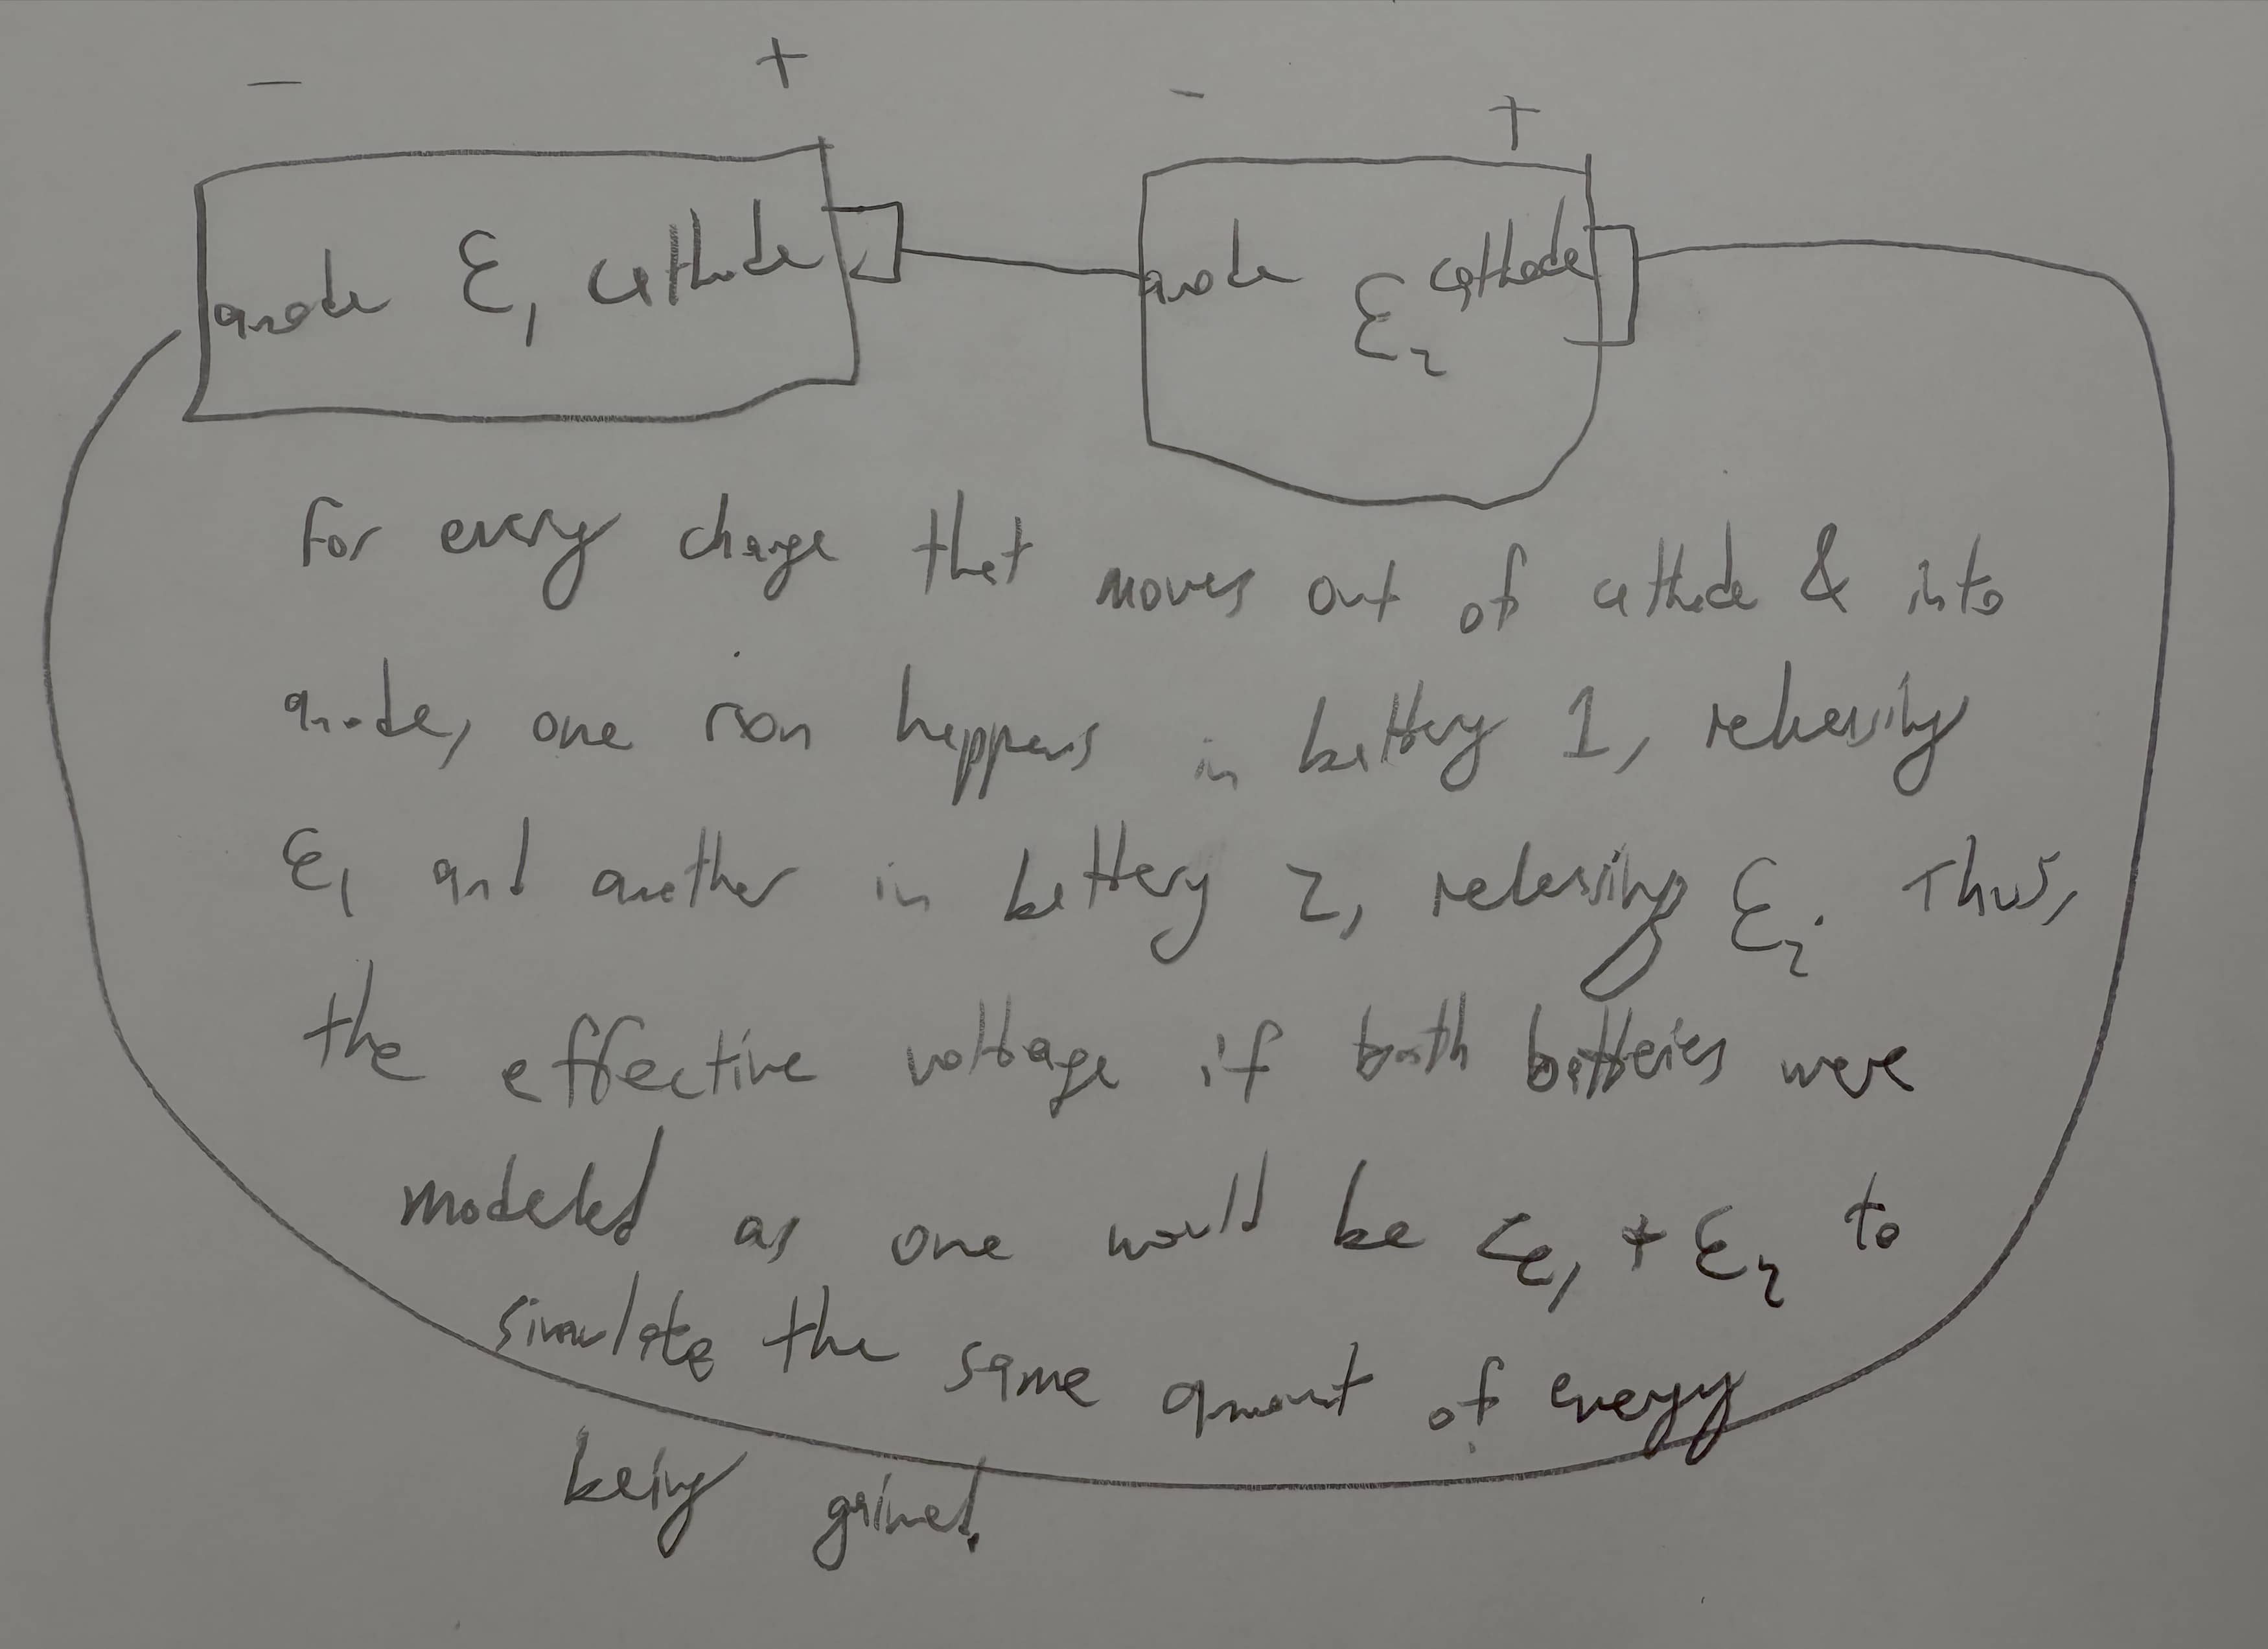 − + − +
anode ℰ₁ cathode anode ℰ₂ cathode
For every charge that moves out of cathode & into
anode, one rxn happens in battery 1, releasing
ℰ₁ and another in battery 2, releasing ℰ₂. Thus,
the effective voltage if both batteries were
modeled as one would be ℰ₁ + ℰ₂ to
simulate the same amount of energy
being gained.